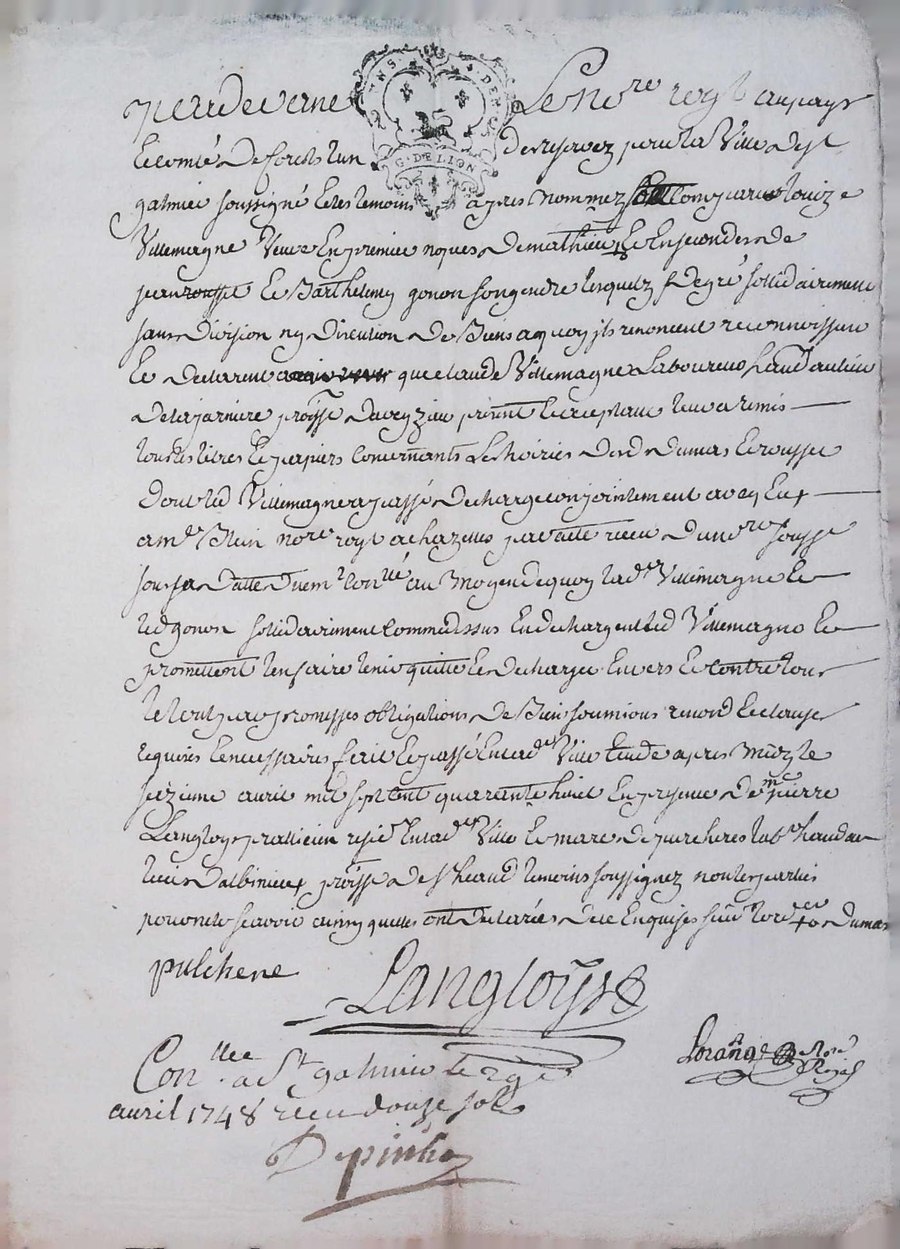 Pardevant Le no.re royal au pays
GN. DE LION
et comté de forests l'un des reservez pour la Ville de St
galmier soussigné et les temoins apres nommez sont comparus louize
Villemagne Veuve En premier nopces de mathieu Et En secondes de
jean rousset Et Barthelemy gonon son gendre lesquelz de gré sollidairement
sans division ny discution de Biens a quoy ils renoncent reconnoissent
Et declarent que claude Villemagne Laboureur hand au lieu
de la jarniere p.oisse present Et acceptant leur a remis
tous les titres Et papiers concernants Les hoiries desd dumas Et rousset
dont led Villemagne a passé decharge conjointement avec Eux
a m.e no.re royal a chazelles par acte receu du no.re souss.é
sous sa datte duem.t con.llé au moyen de quoy lad.e Villemagne Et
led gonon sollidairement comme dessus En dechargent led Villemagne Et
promettent l'en faire tenir quitte Et decharger Envers Et contre tous
le tout par promesses obligations de Biens soumions renon.d Et clauses
requises Et necessaires fait Et passé En lad.e Ville Etude apres midy le
seizieme avril mil sept cent quarante huit En presence de m.e pierre
Langloys praticien resid.t En lad.e Ville Et marc de purcheres lab.r hand au
lieu d'albinieux p.oisse de St heand temoins soussignez non les parties
pour ne sçavoir ainsy quelles ont declarées de ce Enquises
pulchere
Langloys
Con.llee a St galmier le
avril 1748 receu douze sols
no.re Royal